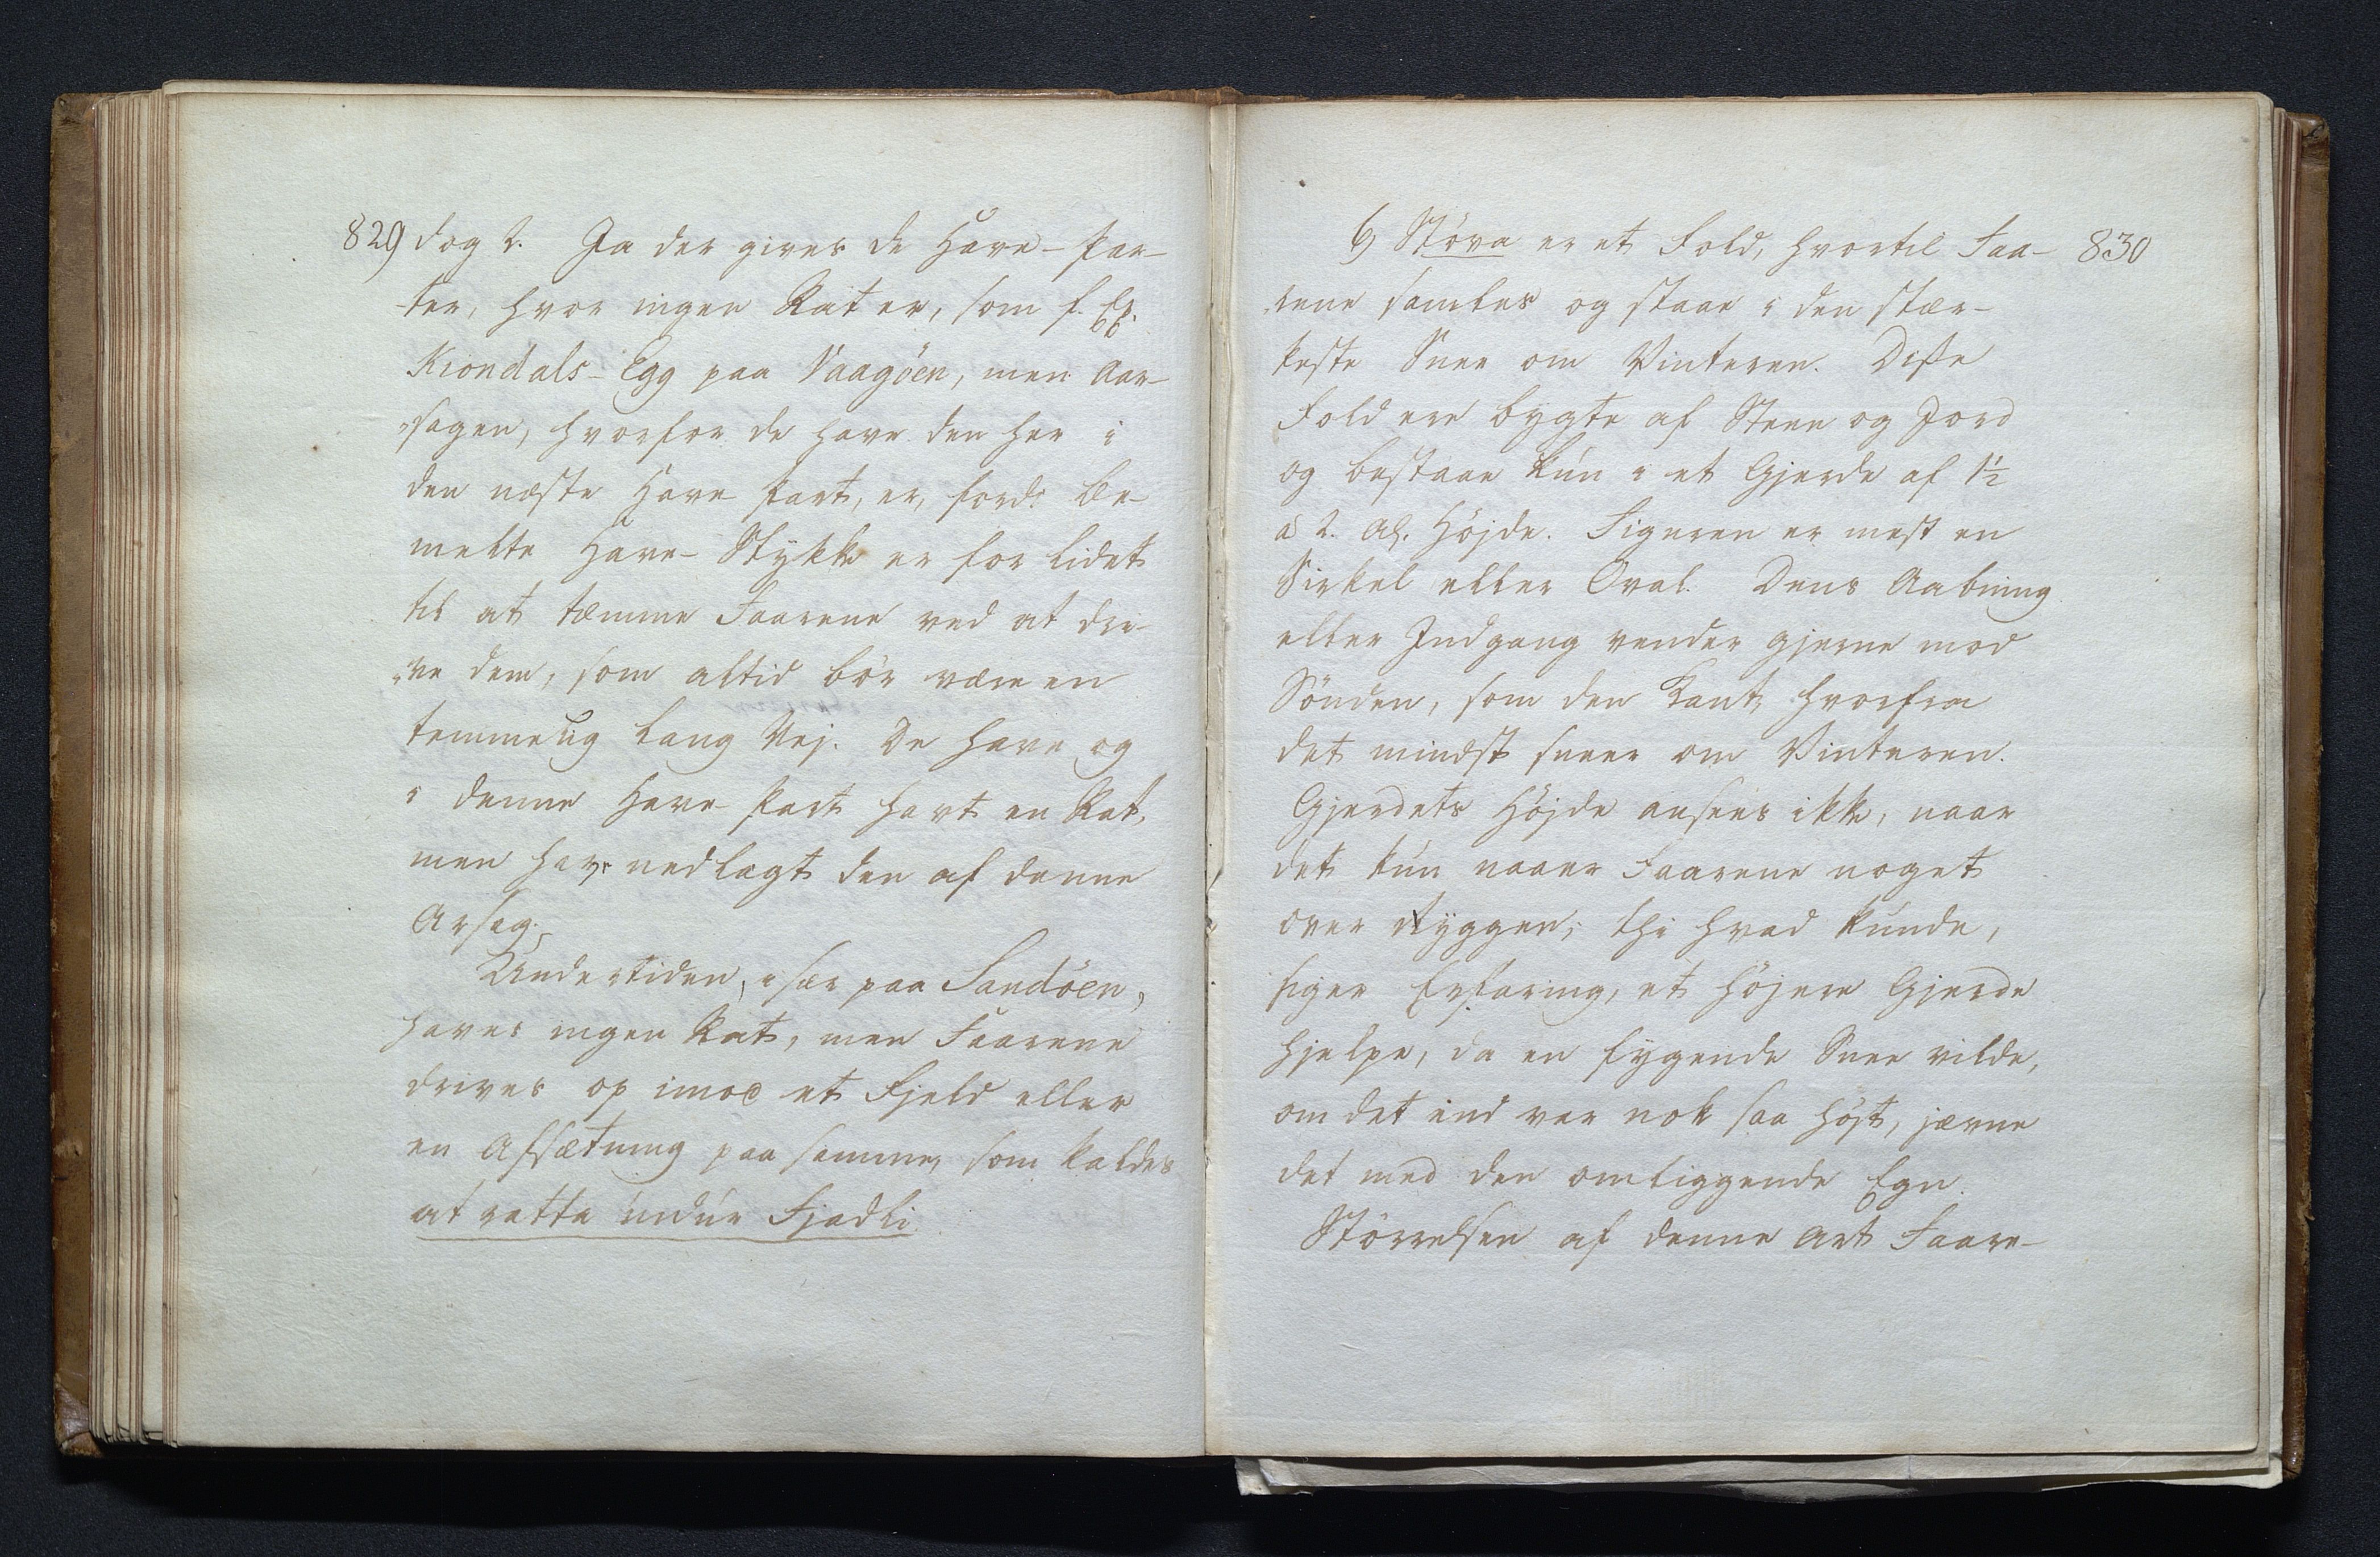 829 dog 2. Ja der gives de Have-Par-
-ter, hvor ingen Rat er, som f. Ex.
Kiondals-Egg paa Vaagöen, men Aar-
-sagen, hvorfor de have den her i
den næste Have Part, er, fordi be-
melte Have-Stykke er for lidet
til at tæmme Faarene ved at dri-
-ve dem, som altid bör være en
temmelig lang Vej. De have og
i denne Have-Part havt en Rat,
men have nedlagt den af denne
Arsag.
Undertiden, især paa Sandöen,
haves ingen Rat, men Faarene
drives op imod et Fjeld eller
en Afsætning paa samme, som kaldes
at ratta undur Fjadli.
6) Störa er et Fold, hvortil Faa- 830
-rene samles og staae i den stær-
keste Snee om Vinteren. Disse
Fold ere bygte af Steen og Jord
og bestaae kun i et Gjerde af 1½
a 2. Al. Höjde. Figuren er mest en
Sirkel eller Oval. Dens Aabning
eller Indgang vender gjerne mod
Sönden, som den Kant, hvorfra
det mindst sneer om Vinteren.
Gjerdets Höjde ansees ikke, naar
det kun naaer Faarene noget
over Ryggen; thi hvad kunde,
siger Erfaring, et höjere Gjerde
hjelpe, da en fygende Snee vilde,
om det end var nok saa höjt, jævne
det med den omliggende Egn.
Störrelsen af denne Art Faare-